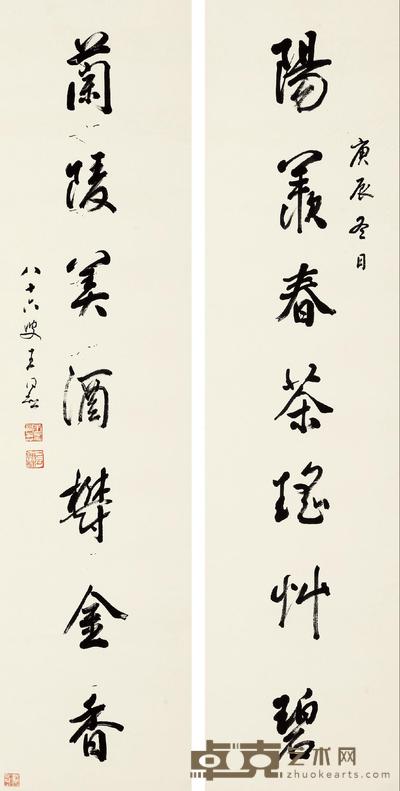 陽羨春茶瑤艸碧
庚辰冬日
蘭陵美酒鬱金香
八十六叟王同愈
卓克艺术网
zhuokearts.com